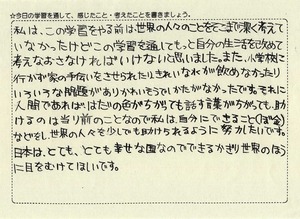 ☆今日の学習を通して、感じたこと・考えたことを書きましょう。
私は、この学習をやる前は世界の人々のことをそこまで深く考えて
いなかったけどこの学習を通してもっと自分の生活を改めて
考えなおさなければいけないと思いました。また、小学校に
行かず家の手伝いをさせられたりきれいな水が飲めなかったり
いろいろな問題がありかわいそうでしかたがなかったです。それに
人間であればはだの色がちがっても話す言葉がちがっても、助
けるのは当り前のことなので私は、自分にできること(ぼ金)
などをし、世界の人々を少しでも助けられるように努力したいです。
日本は、とても、とても幸せな国なのでできるかぎり世界のほう
に目をむけてほしいです。